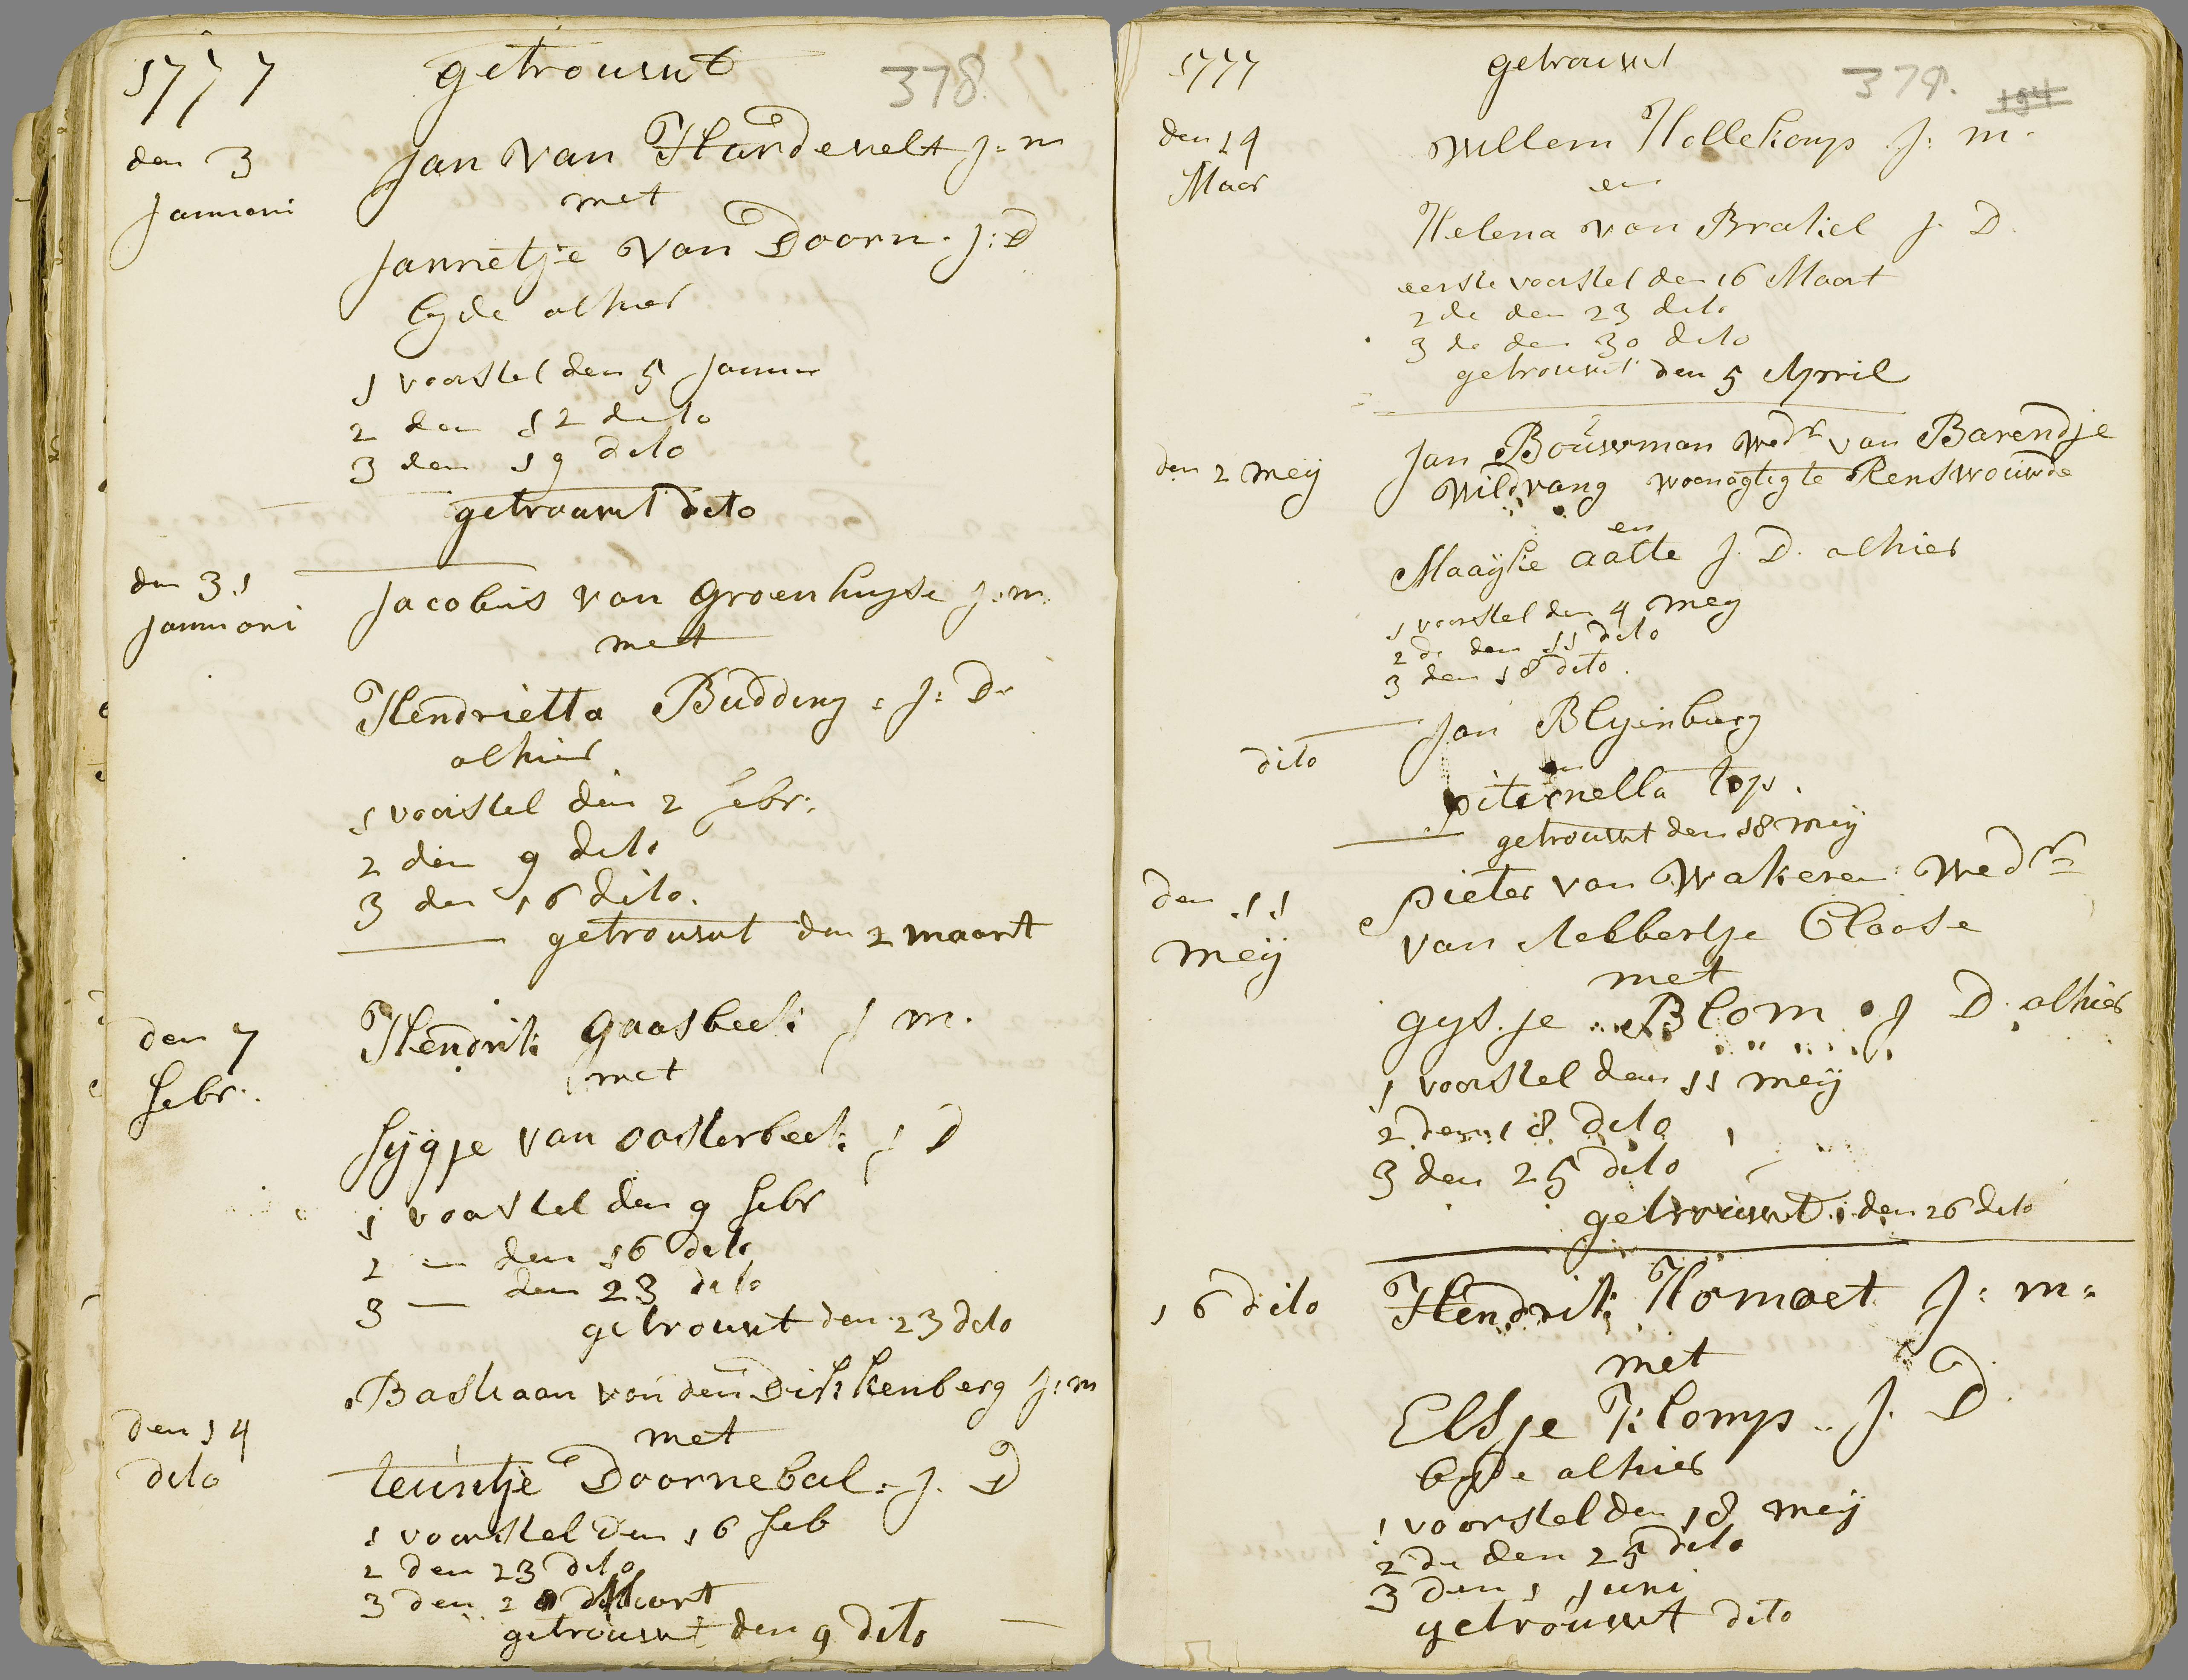 1777 getrouwt 378.
den 3 Januari
Jan van Hardevelt J:m
met
Jannetje van Doorn. J:D
byde alhier
1 voorstel den 5 Januar
2 den 12 dito
3 den 19 dito
getrouwt dito
den 31 Januari
Jacobus van Groenhuyse J:m.
met
Hendrietta Budding: J:D.
alhier
1 voorstel den 2 febr:
2 den 9 dito
3 den 16 dito.
getrouwt den 2 maart
den 7 febr:
Hendrik Gaasbeek J m.
met
Sijgje van Oosterbeek J D
1 voorstel den 9 febr
2 — den 16 dito
3 — den 23 dito
getrouwt den 23 dito
den 14 dito
Bastiaan van den Dikkenberg J:m
met
teuntje Doornebal: J. D
1 voorstel den 16 feb
2 den 23 dito
3 den 2 Maart
getrouwt den 9 dito
1777 getrouwt 379. 194
den 14 Maar
Willem Hollekamp J: m.
en
Helena van Brakel J. D.
eerste voorstel den 16 Maart
2 de den 23 dito
3 de den 30 dito
getrouwt den 5 April
den 2 meij
Jan Bouwman Wedr van Barendje
Wildvang woonagtig te Renswouwde
en
Maayke aalte J. D. alhier
1 voorstel den 4 meij
2 de den 11 dito
3 den 18 dito.
dito
Jan Blyenburg
en
piternella top.
getrouwt den 18 meij
den 11 meij
pieter van Wakeren Wedr
van Aebbertje Claase
met
gysje Blom J D. alhier
1 voorstel den 11 meij
2 den 18 dito
3 den 25 dito
getrouwt den 26 dito
16 dito
Hendrik Homoet J: m:
met
Elsje Klomp. J. D.
byde alhier
1 voorstel den 18 meij
2 de den 25 dito
3 den 1 Juni
getrouwt dito